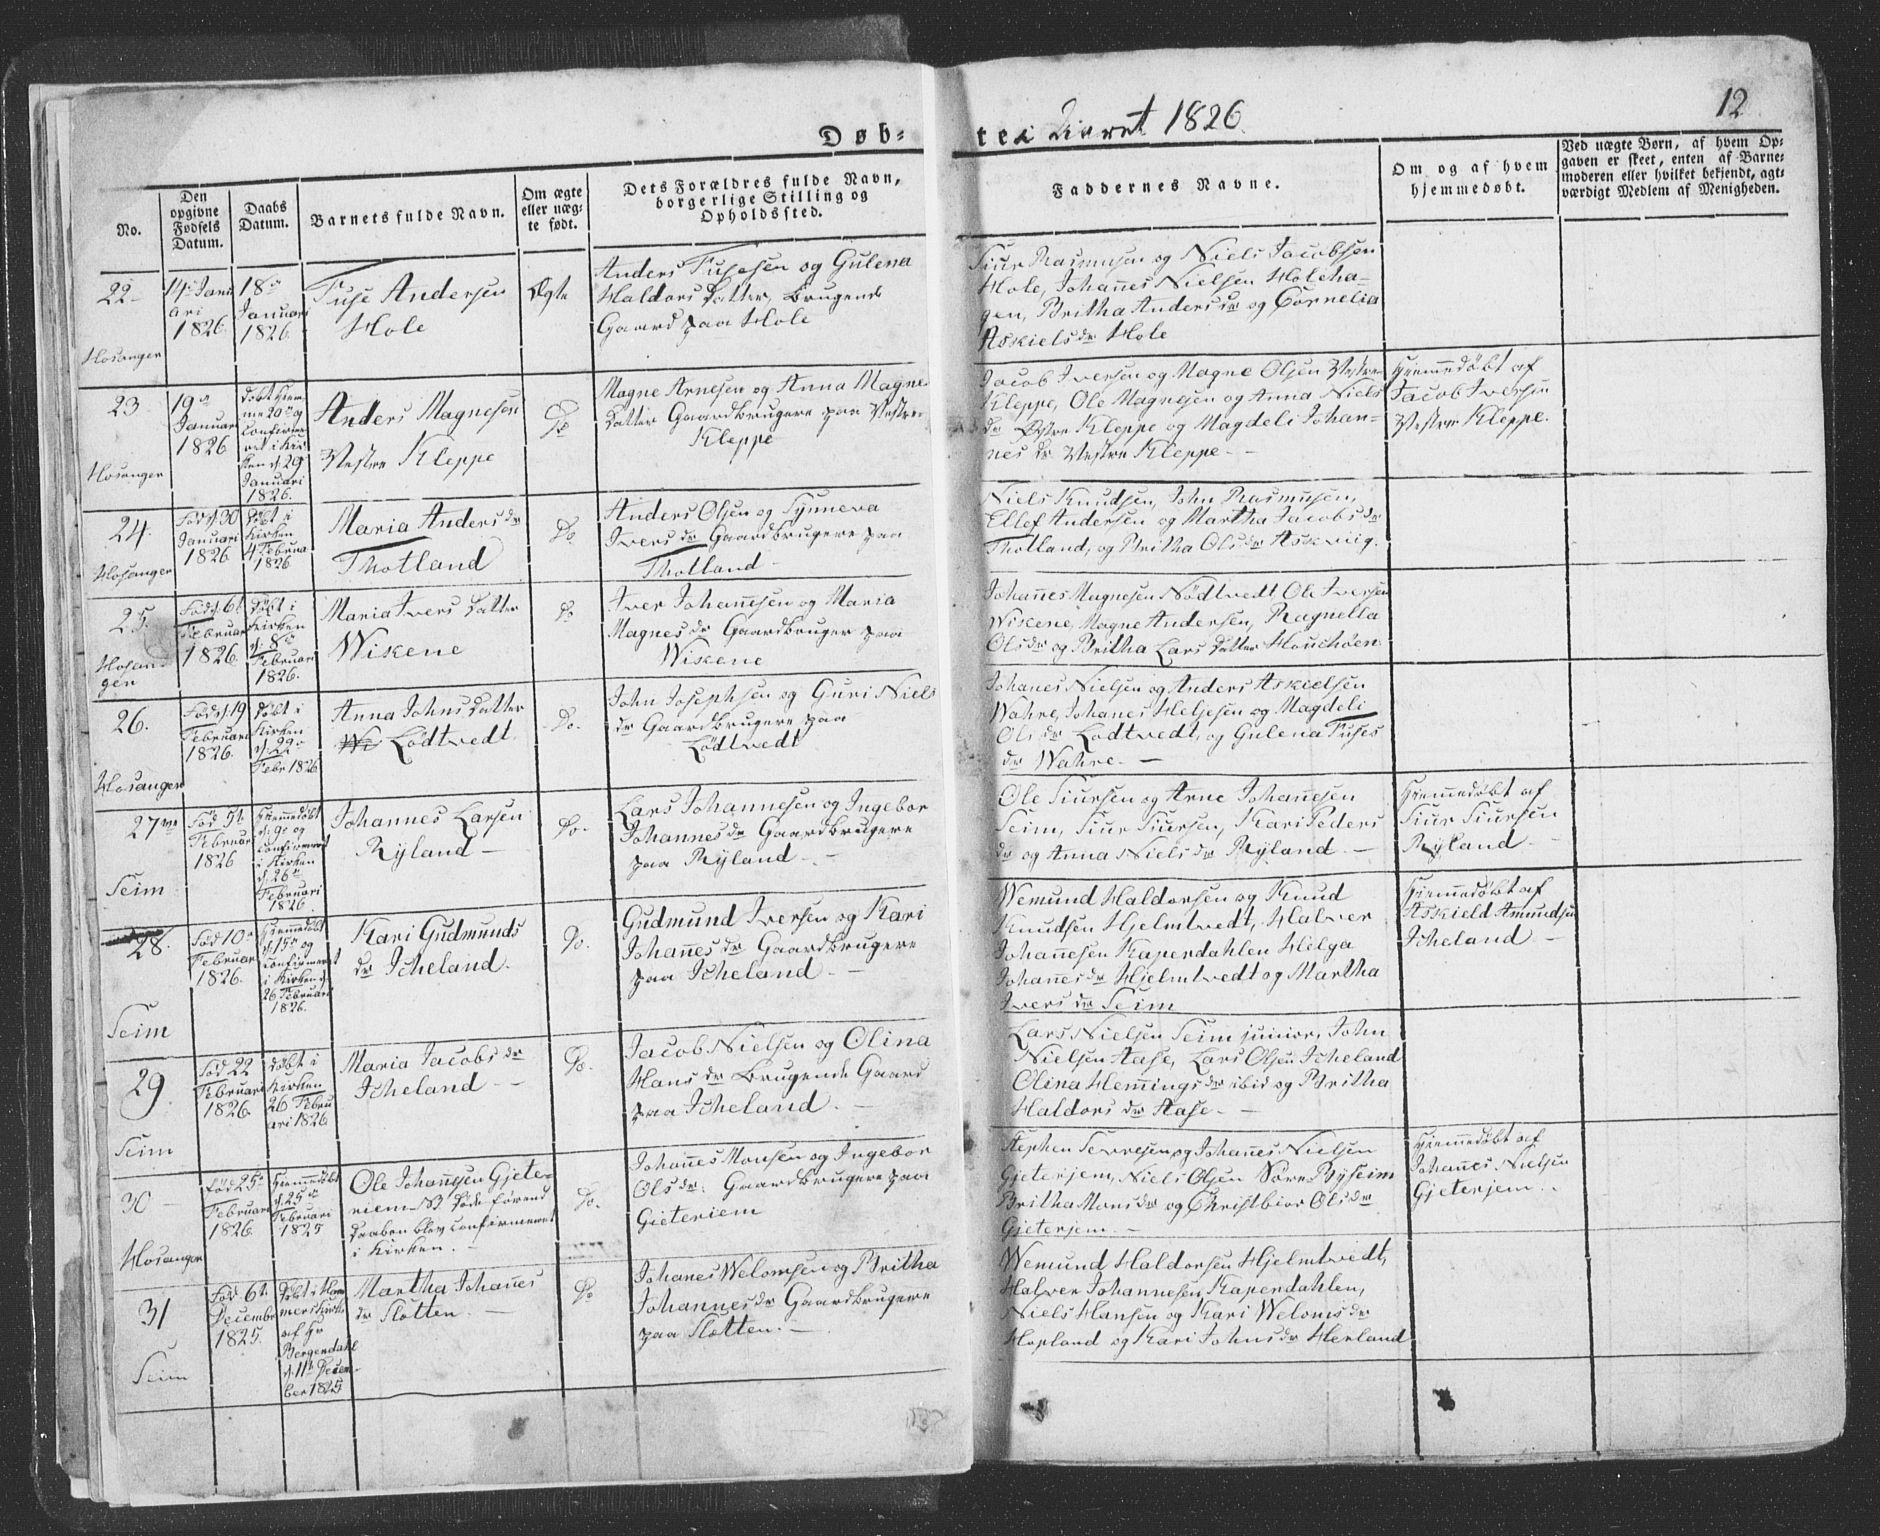 Døb-
te i Aaret 1826.
12
No.
Den opgivne Fødsels Datum.
Daabs Datum.
Barnets fulde Navn.
Om ægte eller uægte født.
Dets Forældres fulde Navn, borgerlige Stilling og Opholdssted.
Faddernes Navne.
Om og af hvem hjemmedøbt.
Ved uægte Børn, af hvem Opgaven er skeet, enten af Barnemoderen eller hvilket bekjendt, agtværdigt Medlem af Menigheden.
22
Hosanger
14de Januari
1826
18de
Januari
1826.
Fuse Andersen
Hole
Ægte
Anders Fusesen og Gulena
Haldors Datter, Brugende
Gaard paa Hole
Siur Rasmusen og Niels Jacobsen
Hole, Johan̄es Nielsen Holeha-
gen, Britha Anders dr og Cornelia
Askiels dr Hole
23
Hosanger
19de
Januari
1826
Døbt Hjem-
me 20de og
confirme-
ret i Kir-
ken d. 29
Januari
1826.
Anders Magnesen
Vestre Kleppe
Do
Magne Arnesen og Anna Magne
Datter Gaardbrugere paa Vestre
Kleppe
Jacob Iversen og Magne Olsen Vestre
Kleppe, Ole Magnesen og Anna Niels
dr Østre Kleppe og Magdeli Johan-
nes dr Vestre Kleppe. -
Hjemmedøbt af
Jacob Iversen
Vestre Kleppe.
24.
Hosanger
Fød d. 30
Januari
1826
Døbt i
Kirken
4 Februa
1826
Maria Anders dr
Thotland
Do
Anders Olsen og Synneva
Ivers dr Gaardbrugere paa
Thotland
Niels Knudsen, John Rasmusen,
Ellef Andersen og Martha Jacobs dr
Thotland, og Britha Ols dr Askviig.
25.
Hosan
gen
Fød d. 6t
Februar
1826.
Døbt i
Kirken
d. 8de
Februari
1826.
Maria Ivers Datter
Wikene
Do
Iver Johan̄esen og Maria
Magnes dr Gaardbruger paa
Wikene
Johan̄es Magnesen Nödtvedt, Ole Iversen
Wikene, Magne Andersen, Ragnella
Ols dr og Britha Lars Datter
26.
Hosanger
Fød d. 19
Februari
1826.
Døbt i
Kirken
d.
Febr 1826
Anna Johns Datter
Lödtvedt.
Do.
John Josephsen og Guri Niels
dr Gaardbrugere paa
Lödtvedt
Johan̄es Nielsen og Anders Askielsen
Wahre, Johanes Heljesen og Magdeli
Ols dr Lödtvedt, og Gulena Fuses
dr Wahre. -
27
Seim
Fød 5t
Februar
1826
Hjemmedöbt
d. 9de og
confirmeret
i Kirken
d. 26de
Februari
1826.
Johannes Larsen
Ryland -
Do.
Lars Johannesen og Ingebor
Johannes dr Gaardbrugere
paa Ryland -
Ole Siursen og Arne Johan̄esen
Seim, Siur Siursen, Kari Peders
dr og Anna Niels dr Ryland. -
Hjemmedøbt af
Siur Siursen
Ryland -
28.
Seim
Fød 10de
Februar
1826.
Hjemmedöbt
d. 15de og
confirmeret
i Kirken d.
26 Februari
1826.
Kari Gudmunds
dr Icheland.
Do.
Gudmund Iversen og Kari
Johan̄es dr Gaardbrugere
paa Icheland. -
Wemund Haldorsen og Knud
Knudsen Hjelmtvedt, Halver
Johan̄esen Kaperdahlen Helga
Johan̄es dr Hjelmtvedt og Martha
Ivers dr Seim
Hjemmedøbt af
Askield Amundsen
Icheland -
29.
Seim
Fød 22
Februari
1826.
döbt i
Kirken
26 Febru
ari 1826
Maria Jacobs dr
Icheland -
Do.
Jacob Nielsen og Olina
Hans dr Brugende Gaard
paa Icheland. -
Lars Nielsen Seim junior, John
Nielsen Aase, Lars Olsen Icheland
Olina Hemings dr ibid og Britha
Haldors dr Aase. -
30
Hosanger
Fød 25de
Februari
1826.
Hjemmedöbt
d. 25de
Februari
1825
Ole Johan̄esen Gjete-
riem NB Døde förend
daaben blev confirmeret
i Kirken.
Do.
Johan̄es Monsen og Ingebor
Ols dr. Gaardbrugere paa
Gieteriem
Stephen og Johan̄es Nielsen
Gjeterjem, Niels Olsen Søre Byseim
Britha Mons dr og Christbior Ols dr
Gjeterjem -
Hjemmedøbt af
Johan̄es Nielsen
Gjeterjem.
31
Seim
Fød 6t.
December
1825.
Døbt i Ham
mers Kirke
af Hr
Bergendahl
d. 11te Decem-
ber 1825
Martha Johan̄es
dr Slotten. -
Do
Johanes Welomsen og Britha
Johannes dr Gaardbrugere
paa Slotten. -
Wemund Haldorsen Hjelmtvedt,
Halver Johannesen Kaperdahlen,
Niels Hansen og Kari Weloms dr
Hopland og Kari Johns dr Herland